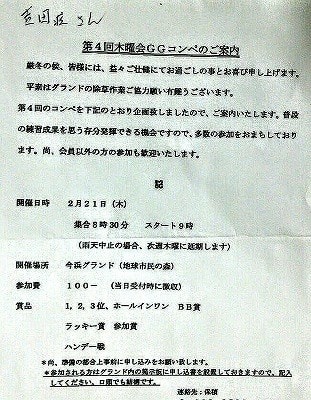 さん
第4回木曜会GGコンペのご案内
厳冬の候、皆様には、益々ご壮健にてお過ごしの事とお喜び申し上げます。
平素はグランドの除草作業ご協力願い有難うございます。
第4回のコンペを下記のとおり企画致しましたので、ご案内いたします。普段
の練習成果を思う存分発揮できる機会ですので、多数の参加をおまちしており
ます。尚、会員以外の方の参加も歓迎いたします。
記
開催日時 2月21日(木)
集合8時30分 スタート9時
(雨天中止の場合、次週木曜に延期します)
開催場所 今浜グランド(地球市民の森)
参加費 100- (当日受付時に徴収)
賞品 1,2,3位、ホールインワン BB賞
ラッキー賞 参加賞
ハンデー戦
*尚、準備の都合上事前に申し込みをお願い致します。
*参加される方はグランド内の掲示板に申し込書を設置しておきますので、記入
してください。口頭でも結構です。
連絡先:保積